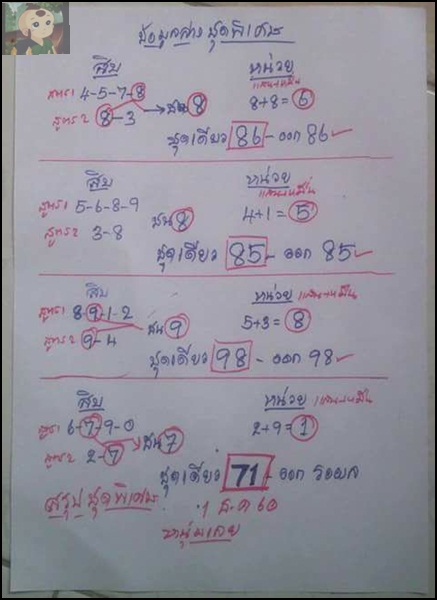 ข้อมูลสาร ชุดพิเศษ
สิบ หน่วย
สูตร1 4-5-7-8 แสน+หมื่น
สูตร2 8-3 → ชน 8 8+8=6
ชุดเดียว 86 - ออก 86 ✓
สิบ หน่วย
สูตร1 5-6-8-9 แสน+หมื่น
ชน 8 4+1=5
สูตร2 3-8
ชุดเดียว 85 - ออก 85 ✓
สิบ หน่วย แสน+หมื่น
สูตร1 8-9-1-2
ชน 9 5+3=8
สูตร2 9-4
ชุดเดียว 98 - ออก 98 ✓
สิบ หน่วย แสน+หมื่น
สูตร1 6-7-9-0 2+9=1
ชน 7
สูตร2 2-7
ชุดเดียว 71 - ออก รอผล
สรุป ชุดพิเศษ 1 ธ.ค 60